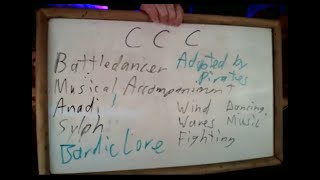 C C C
Battledancer
Musical Accompaniment
Anadi!
Sylph
Bardic Lore
Adopted by
Pirates
Wind Dancing
Waves Music
Fighting